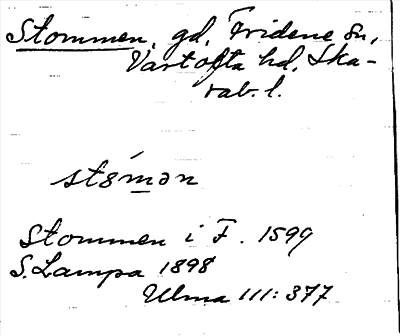 Stommen, gd, Fridene sn,
Vartofta hd, Ska-
rab. l.
stómən
Stommen i F. 1599
S. Lampa 1898
Ulma 111: 377